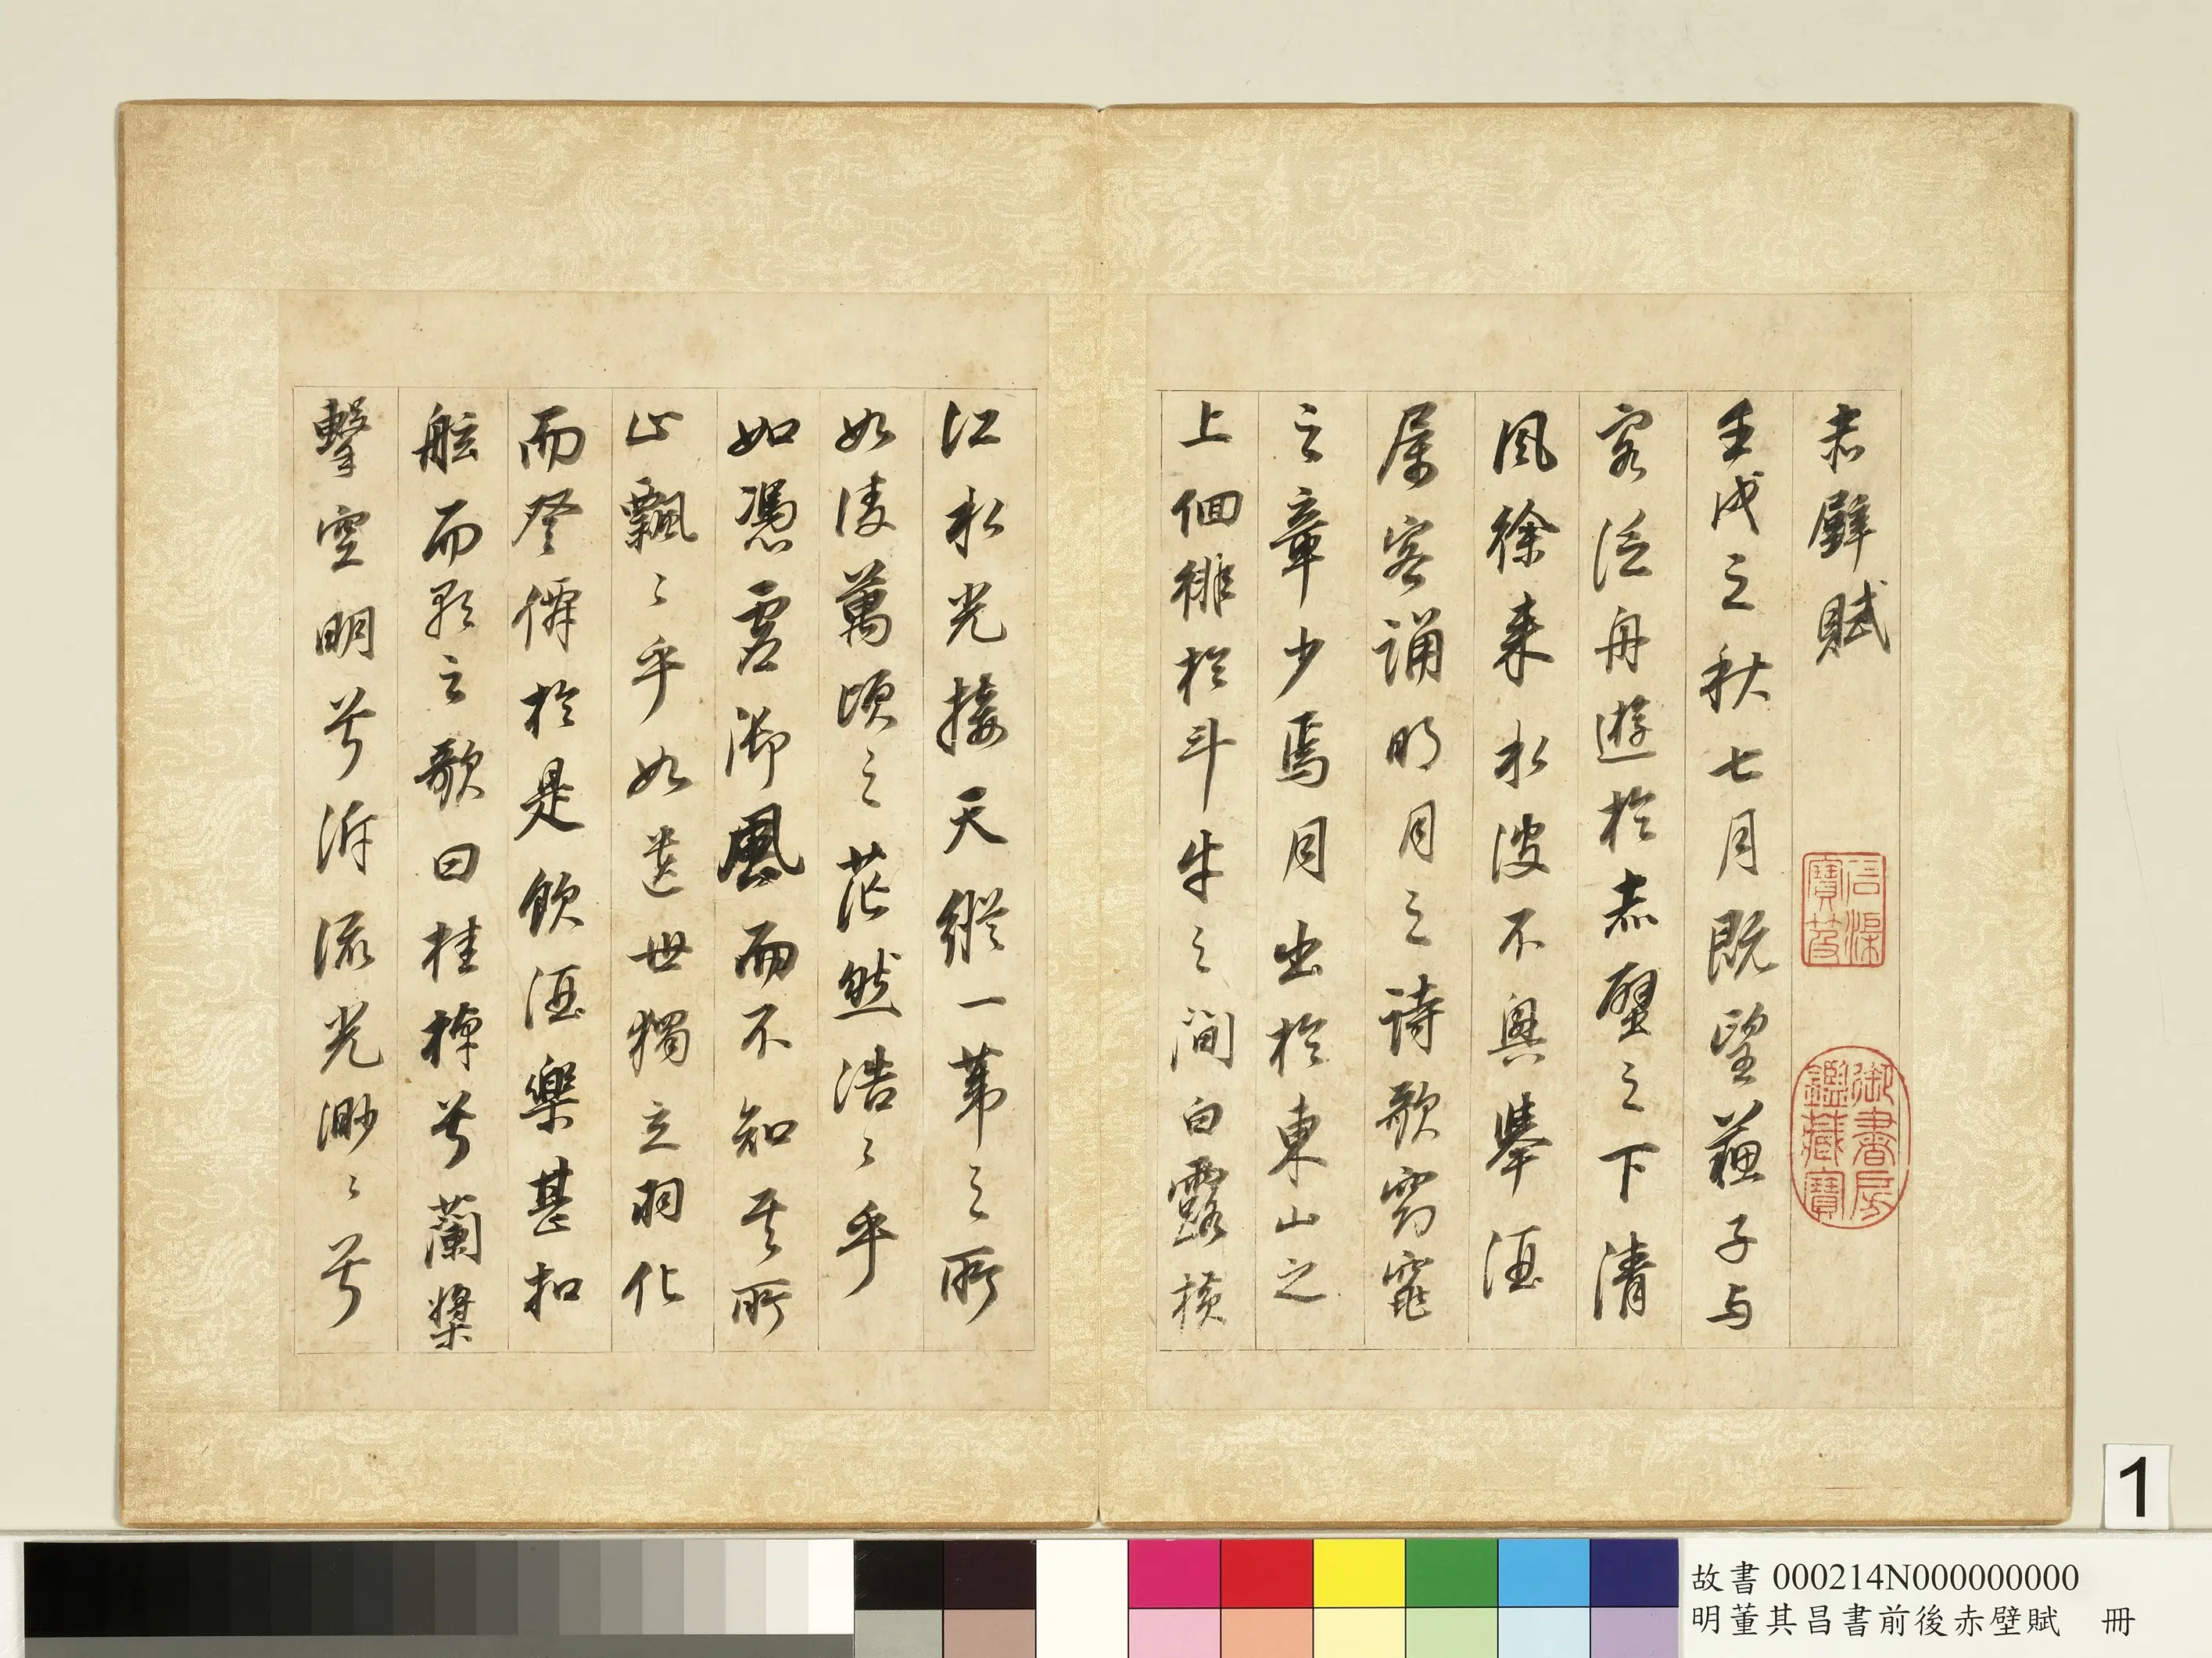 赤壁賦
壬戌之秋七月既望蘇子与
客泛舟遊於赤壁之下清
風徐来水波不興舉酒
属客誦明月之詩歌窈窕
之章少焉月出於東山之
上徊徘於斗牛之間白露横
江水光接天縱一葦之所
如凌萬頃之茫然浩〻乎
如馮虛御風而不知其所
止飄〻乎如遺世獨立羽化
而登僊於是飲酒樂甚扣
舷而歌之歌曰桂棹兮蘭槳
擊空明兮泝流光渺〻兮
石渠寶笈
御書房鑑藏寶
1
故書 000214N000000000
明董其昌書前後赤壁賦 冊